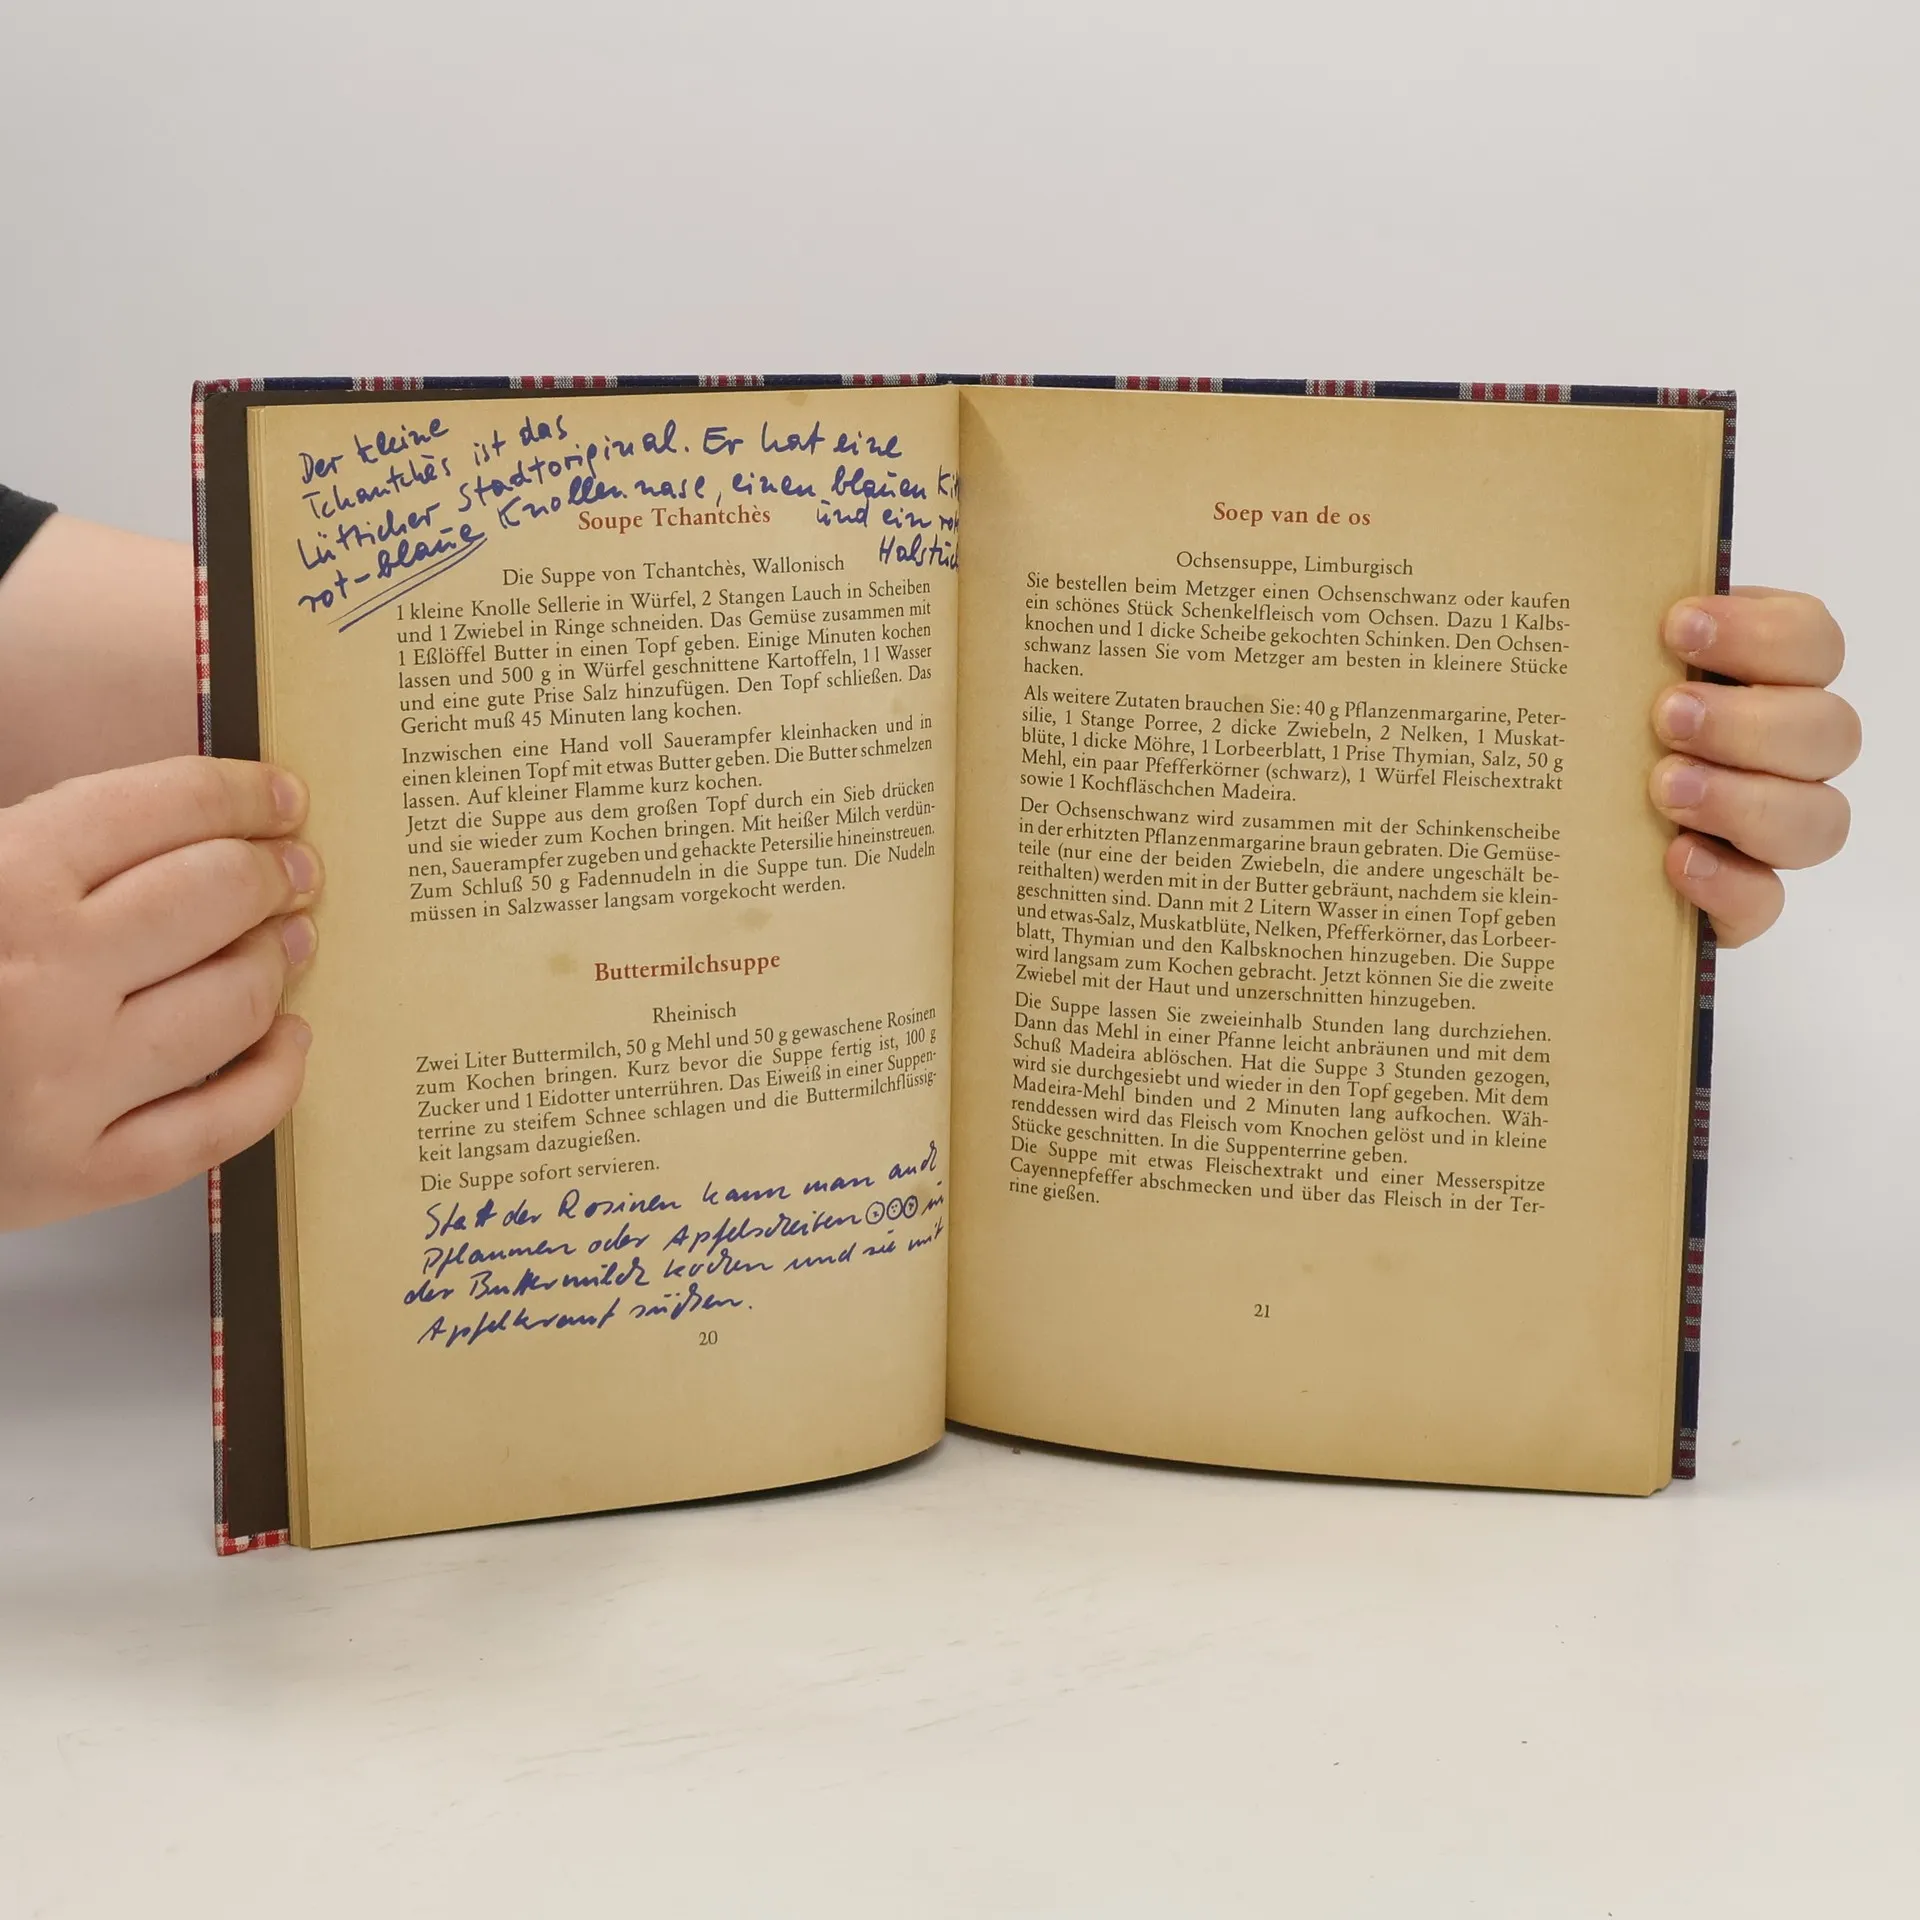 Der kleine
Tchantchès ist das
Lütticher Stadtoriginal. Er hat eine
rot-blaue Knollennase, einen blauen Kit
und ein rot
Halstuch
Soupe Tchantchès
Die Suppe von Tchantchès, Wallonisch
1 kleine Knolle Sellerie in Würfel, 2 Stangen Lauch in Scheiben
und 1 Zwiebel in Ringe schneiden. Das Gemüse zusammen mit
1 Eßlöffel Butter in einen Topf geben. Einige Minuten kochen
lassen und 500 g in Würfel geschnittene Kartoffeln, 1 l Wasser
und eine gute Prise Salz hinzufügen. Den Topf schließen. Das
Gericht muß 45 Minuten lang kochen.
Inzwischen eine Hand voll Sauerampfer kleinhacken und in
einen kleinen Topf mit etwas Butter geben. Die Butter schmelzen
lassen. Auf kleiner Flamme kurz kochen.
Jetzt die Suppe aus dem großen Topf durch ein Sieb drücken
und sie wieder zum Kochen bringen. Mit heißer Milch verdün-
nen, Sauerampfer zugeben und gehackte Petersilie hineinstreuen.
Zum Schluß 50 g Fadennudeln in die Suppe tun. Die Nudeln
müssen in Salzwasser langsam vorgekocht werden.
Buttermilchsuppe
Rheinisch
Zwei Liter Buttermilch, 50 g Mehl und 50 g gewaschene Rosinen
zum Kochen bringen. Kurz bevor die Suppe fertig ist, 100 g
Zucker und 1 Eidotter unterrühren. Das Eiweiß in einer Suppen-
terrine zu steifem Schnee schlagen und die Buttermilchflüssig-
keit langsam dazugießen.
Die Suppe sofort servieren.
Statt der Rosinen kann man auch
Pflaumen oder Apfelscheiben in
der Buttermilch kochen und sie mit
Apfelkraut süßen.
20
Soep van de os
Ochsensuppe, Limburgisch
Sie bestellen beim Metzger einen Ochsenschwanz oder kaufen
ein schönes Stück Schenkelfleisch vom Ochsen. Dazu 1 Kalbs-
knochen und 1 dicke Scheibe gekochten Schinken. Den Ochsen-
schwanz lassen Sie vom Metzger am besten in kleinere Stücke
hacken.
Als weitere Zutaten brauchen Sie: 40 g Pflanzenmargarine, Peter-
silie, 1 Stange Porree, 2 dicke Zwiebeln, 2 Nelken, 1 Muskat-
blüte, 1 dicke Möhre, 1 Lorbeerblatt, 1 Prise Thymian, Salz, 50 g
Mehl, ein paar Pfefferkörner (schwarz), 1 Würfel Fleischextrakt
sowie 1 Kochfläschchen Madeira.
Der Ochsenschwanz wird zusammen mit der Schinkenscheibe
in der erhitzten Pflanzenmargarine braun gebraten. Die Gemüse-
teile (nur eine der beiden Zwiebeln, die andere ungeschält be-
reithalten) werden mit in der Butter gebräunt, nachdem sie klein-
geschnitten sind. Dann mit 2 Litern Wasser in einen Topf geben
und etwas Salz, Muskatblüte, Nelken, Pfefferkörner, das Lorbeer-
blatt, Thymian und den Kalbsknochen hinzugeben. Die Suppe
wird langsam zum Kochen gebracht. Jetzt können Sie die zweite
Zwiebel mit der Haut und unzerschnitten hinzugeben.
Die Suppe lassen Sie zweieinhalb Stunden lang durchziehen.
Dann das Mehl in einer Pfanne leicht anbräunen und mit dem
Schuß Madeira ablöschen. Hat die Suppe 3 Stunden gezogen,
wird sie durchgesiebt und wieder in den Topf gegeben. Mit dem
Madeira-Mehl binden und 2 Minuten lang aufkochen. Wäh-
renddessen wird das Fleisch vom Knochen gelöst und in kleine
Stücke geschnitten. In die Suppenterrine geben.
Die Suppe mit etwas Fleischextrakt und einer Messerspitze
Cayennepfeffer abschmecken und über das Fleisch in der Ter-
rine gießen.
21